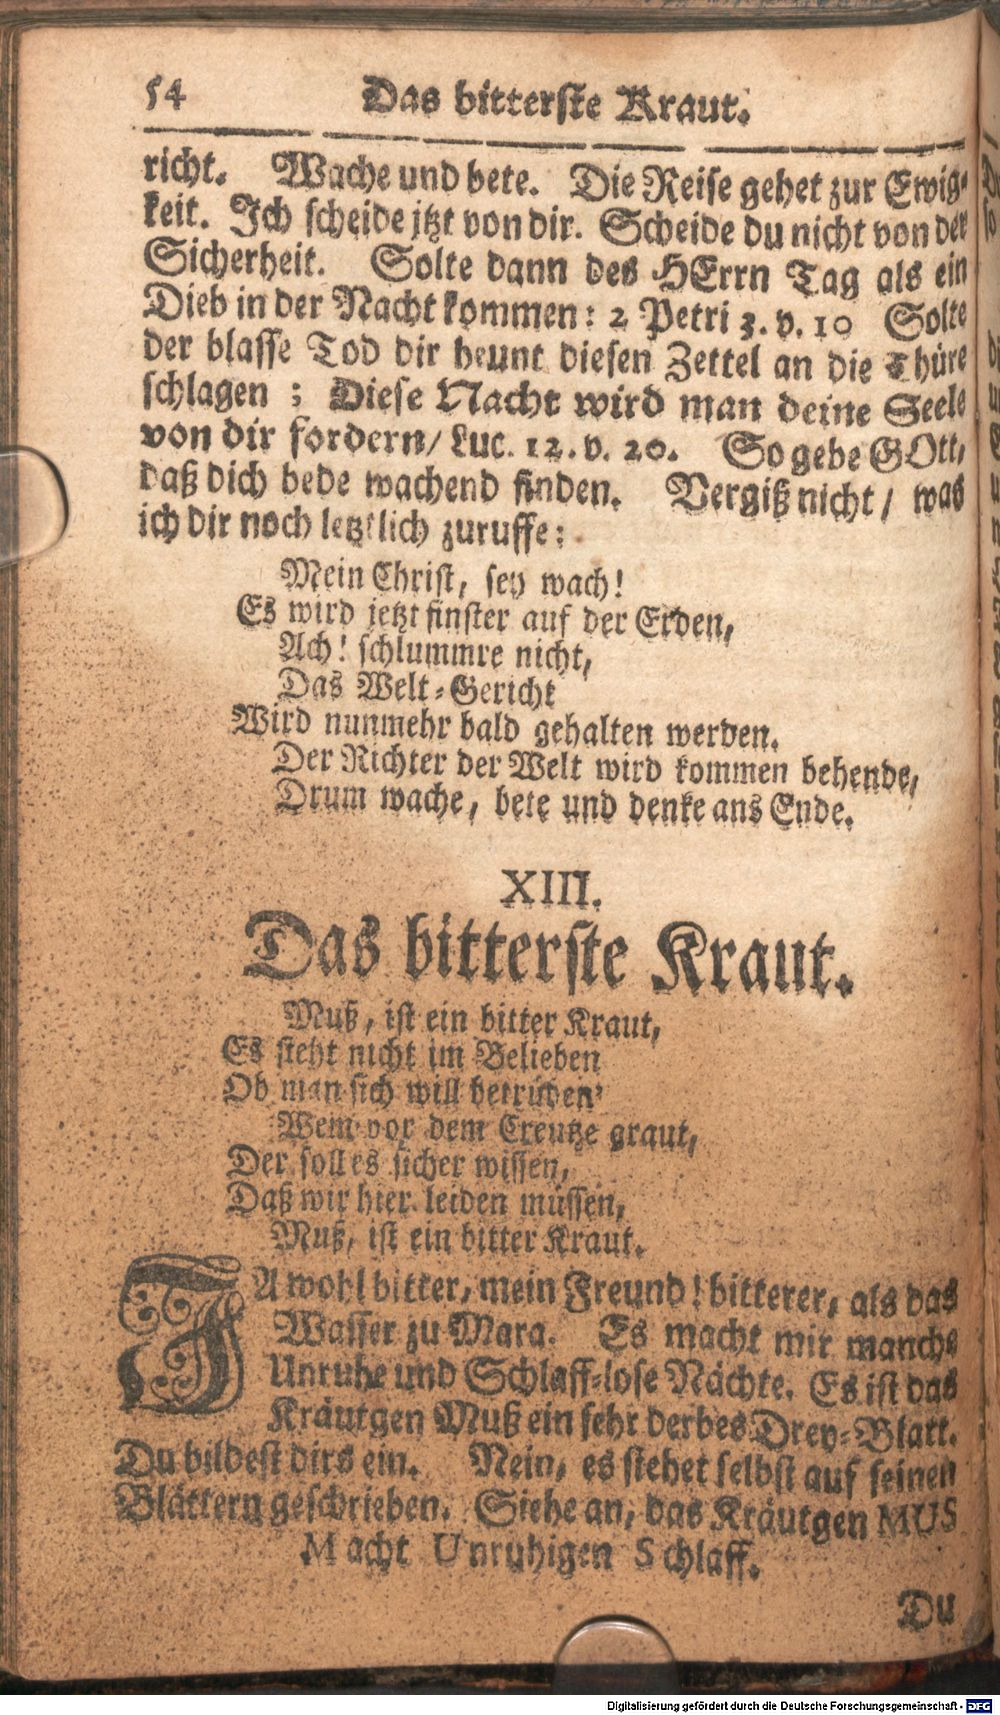 54 Das bitterste Kraut.
richt. Wache und bete. Die Reise gehet zur Ewig-
keit. Ich scheide jtzt von dir. Scheide du nicht von der
Sicherheit. Solte dann des HErrn Tag als ein
Dieb in der Nacht kommen: 2 Petri 3. v. 10 Solte
der blasse Tod dir heunt diesen Zettel an die Thüre
schlagen ; Diese Nacht wird man deine Seele
von dir fordern/ Luc. 12. v. 20. So gebe GOtt,
daß dich bede wachend finden. Vergiß nicht / was
ich dir noch letztlich zuruffe:
Mein Christ, sey wach!
Es wird jetzt finster auf der Erden,
Ach! schlummre nicht,
Das Welt-Gericht
Wird nunmehr bald gehalten werden.
Der Richter der Welt wird kommen behende,
Drum wache, bete und denke ans Ende.
XIII.
Das bitterste Kraut.
Muß, ist ein bitter Kraut,
Es steht nicht im Belieben
Ob man sich will betrüben,
Wem vor dem Creutze graut,
Der soll es sicher wissen,
Daß wir hier leiden müssen,
Muß, ist ein bitter Kraut.
JA wohl bitter, mein Freund! bitterer, als das
Wasser zu Mara. Es macht mir manche
Unruhe und Schlaff-lose Nächte. Es ist das
Kräutgen Muß ein sehr derbes Drey-Blatt.
Du bildest dirs ein. Nein, es stehet selbst auf seinen
Blättern geschrieben. Siehe an, das Kräutgen MUS
Macht Unruhigen Schlaff.
Du
Digitalisierung gefördert durch die Deutsche Forschungsgemeinschaft - DFG